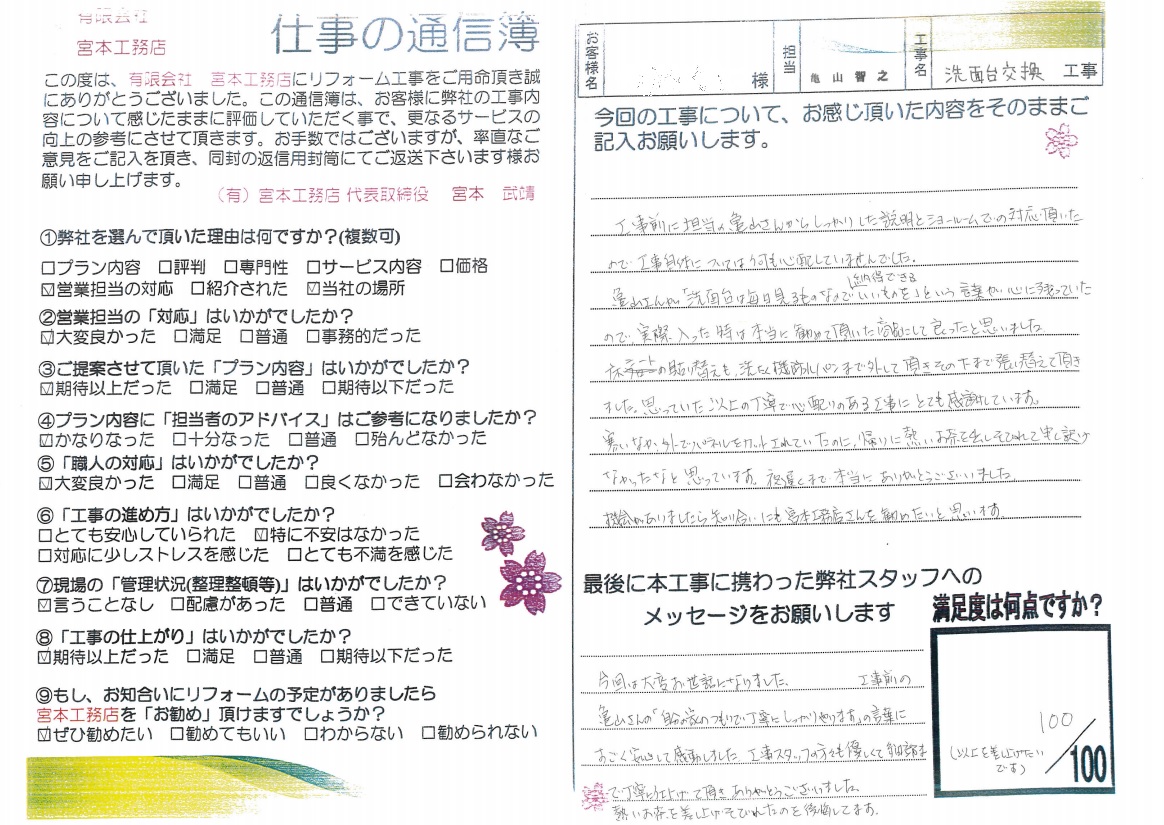 有限会社
宮本工務店
仕事の通信簿
この度は、有限会社　宮本工務店にリフォーム工事をご用命頂き誠
にありがとうございました。この通信簿は、お客様に弊社の工事内
容について感じたままに評価していただく事で、更なるサービスの
向上の参考にさせて頂きます。お手数ではございますが、率直なご
意見をご記入を頂き、同封の返信用封筒にてご返送下さいます様お
願い申し上げます。
（有）宮本工務店 代表取締役　宮本　武靖
①弊社を選んで頂いた理由は何ですか？(複数可)
□プラン内容　□評判　□専門性　□サービス内容　□価格
☑営業担当の対応　□紹介された　☑当社の場所
②営業担当の「対応」はいかがでしたか？
☑大変良かった　□満足　□普通　□事務的だった
③ご提案させて頂いた「プラン内容」はいかがでしたか？
☑期待以上だった　□満足　□普通　□期待以下だった
④プラン内容に「担当者のアドバイス」はご参考になりましたか？
☑かなりなった　□十分なった　□普通　□殆んどなかった
⑤「職人の対応」はいかがでしたか？
☑大変良かった　□満足　□普通　□良くなかった　□会わなかった
⑥「工事の進め方」はいかがでしたか？
□とても安心していられた　☑特に不安はなかった
□対応に少しストレスを感じた　□とても不満を感じた
⑦現場の「管理状況(整理整頓等)」はいかがでしたか？
☑言うことなし　□配慮があった　□普通　□できていない
⑧「工事の仕上がり」はいかがでしたか？
☑期待以上だった　□満足　□普通　□期待以下だった
⑨もし、お知合いにリフォームの予定がありましたら
宮本工務店を「お勧め」頂けますでしょうか？
☑ぜひ勧めたい　□勧めてもいい　□わからない　□勧められない
お客様名　様　担当　亀山智之　工事名　洗面台交換　工事
今回の工事について、お感じ頂いた内容をそのままご
記入お願いします。
工事前に担当の亀山さんからしっかりした説明とショールームでの対応頂いた
ので工事自体については何も心配していませんでした。
納得できる
亀山さんが「洗面台は毎日見るものなのでいいものを」という言葉が心に残っていた
ので、実際入った時は本当に勧めて頂いた商品にして良ったと思いました
床シートの貼り替えも、洗たく機防水パンまで外して頂きその下まで張り替えて頂き
ました。思っていた以上の丁寧で心配りのある工事にとても感謝しています。
寒いなか外でパネルをカットされていたのに、帰りに熱いお茶を出しそびれて申し訳け
なかったなと思っています。夜遅くまで本当にありがとうございました。
機会がありましたら知り合いにも宮本工務店さんを勧めたいと思います
最後に本工事に携わった弊社スタッフへの
メッセージをお願いします
今回は大変お世話になりました。　工事前の
亀山さんの「自分の家のつもりで丁寧にしっかりやります。」の言葉に
すごく安心して感動しました 工事スタッフの方々も優しくて
で丁寧に仕上げて頂き ありがとうございました。
熱いお茶を差し上げそびれたのを後悔してます。
満足度は何点ですか？
100／100
(以上を差し上げたいです)